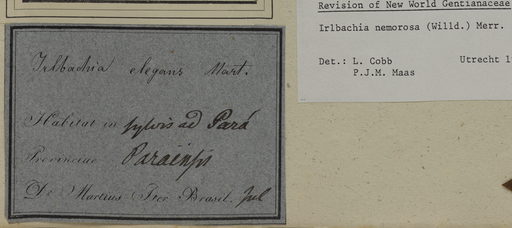 Irlbachia elegans Mart.
Habitat in sylvis ad Pará
Provinciae Paraënsis
Dr Martius Iter Brasil. Jul
Revision of New World Gentianaceae
Irlbachia nemorosa (Willd.) Merr.
Det.: L. Cobb Utrecht 1
P.J.M. Maas